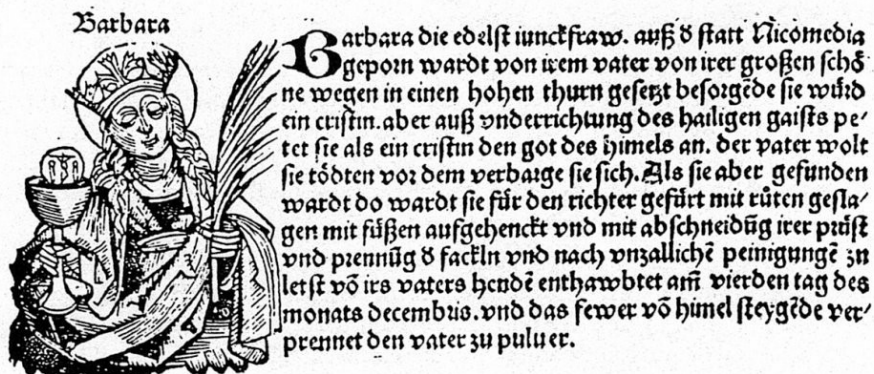 Barbara
Barbara die edelst iunckfraw. auß d̕ statt Nicomedia
geporn wardt von irem vater von irer großen schö
ne wegen in einen hohen thurn gesetzt besorgēde sie würd
ein cristin. aber auß vnderrichtung des hailigen gaists pe-
tet sie als ein cristin den got des himels an. der vater wolt
sie tödten vor dem verbarge sie sich. Als sie aber gefunden
wardt do wardt sie für den richter gefürt mit růten gesla-
gen mit füßen aufgehenckt vnd mit abschneidūg irer prüst
vnd prennūg d̕ fackln vnd nach vnzallichē peinigungē zu
letst vō irs vaters hendē enthawbtet am̄ vierden tag des
monats decembris. vnd das fewer vō himel steygēde ver-
prennet den vater zu puluer.